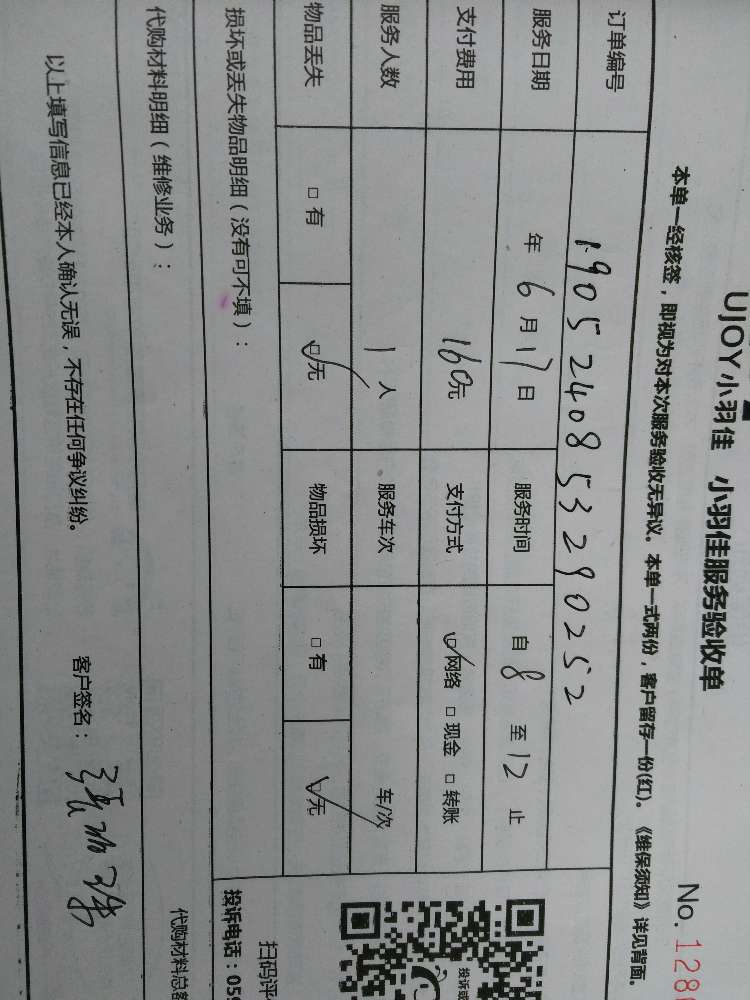 UJOY小羽佳 小羽佳服务验收单
No. 128
本单一经核签，即视为对本次服务验收无异议。本单一式两份，客户留存一份(红)。《维保须知》详见背面。
订单编号 190524085329 0252
服务日期 年 6 月 17 日 服务时间 自 8 至 12 止
支付费用 160元 支付方式 ☑网络 □现金 □转账
服务人数 1 人 服务车次 车/次
物品丢失 □有 ☑无 物品损坏 □有 ☑无
损坏或丢失物品明细（没有可不填）：
代购材料明细（维修业务）：
代购材料总
以上填写信息已经本人确认无误，不存在任何争议纠纷。 客户签名：
扫码评
投诉电话：059